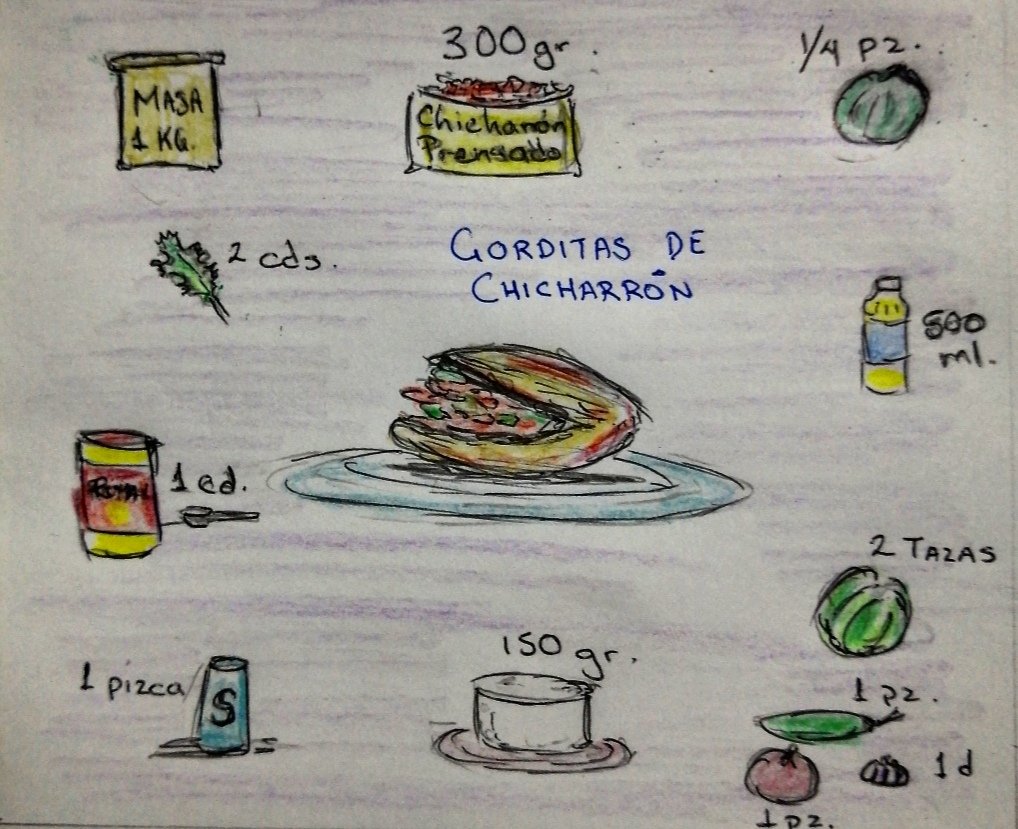 300 gr.
1/4 pz.
MASA
1 KG.
Chicharón
Prensado
2 cds.
GORDITAS DE
CHICHARRÓN
500
ml.
1 cd.
2 TAZAS
150 gr.
1 pizca
S
1 pz.
1 d
1 pz.